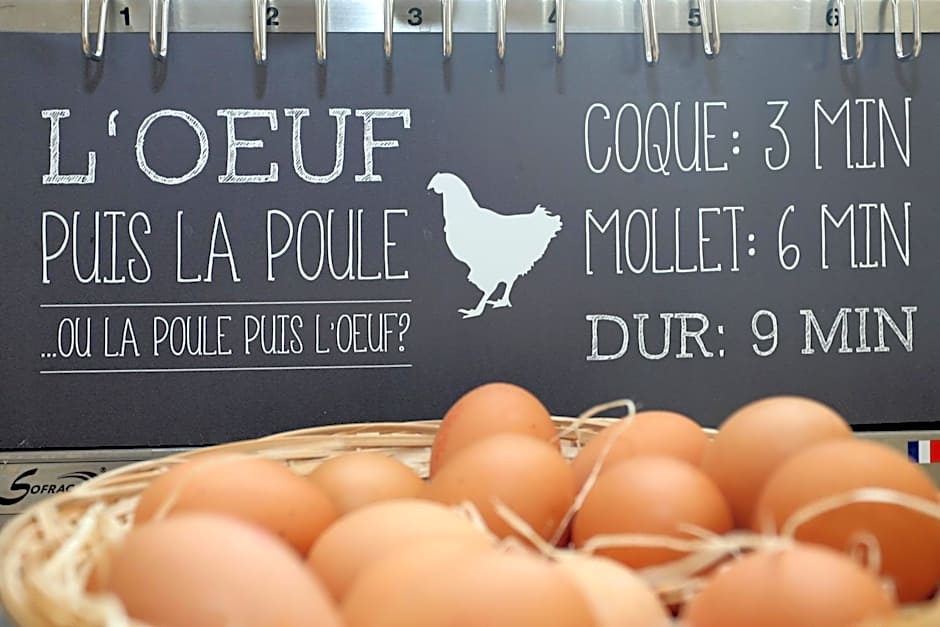 1 2 3 4 5 6
L'OEUF
PUIS LA POULE
...OU LA POULE PUIS L'OEUF?
COQUE: 3 MIN
MOLLET: 6 MIN
DUR: 9 MIN